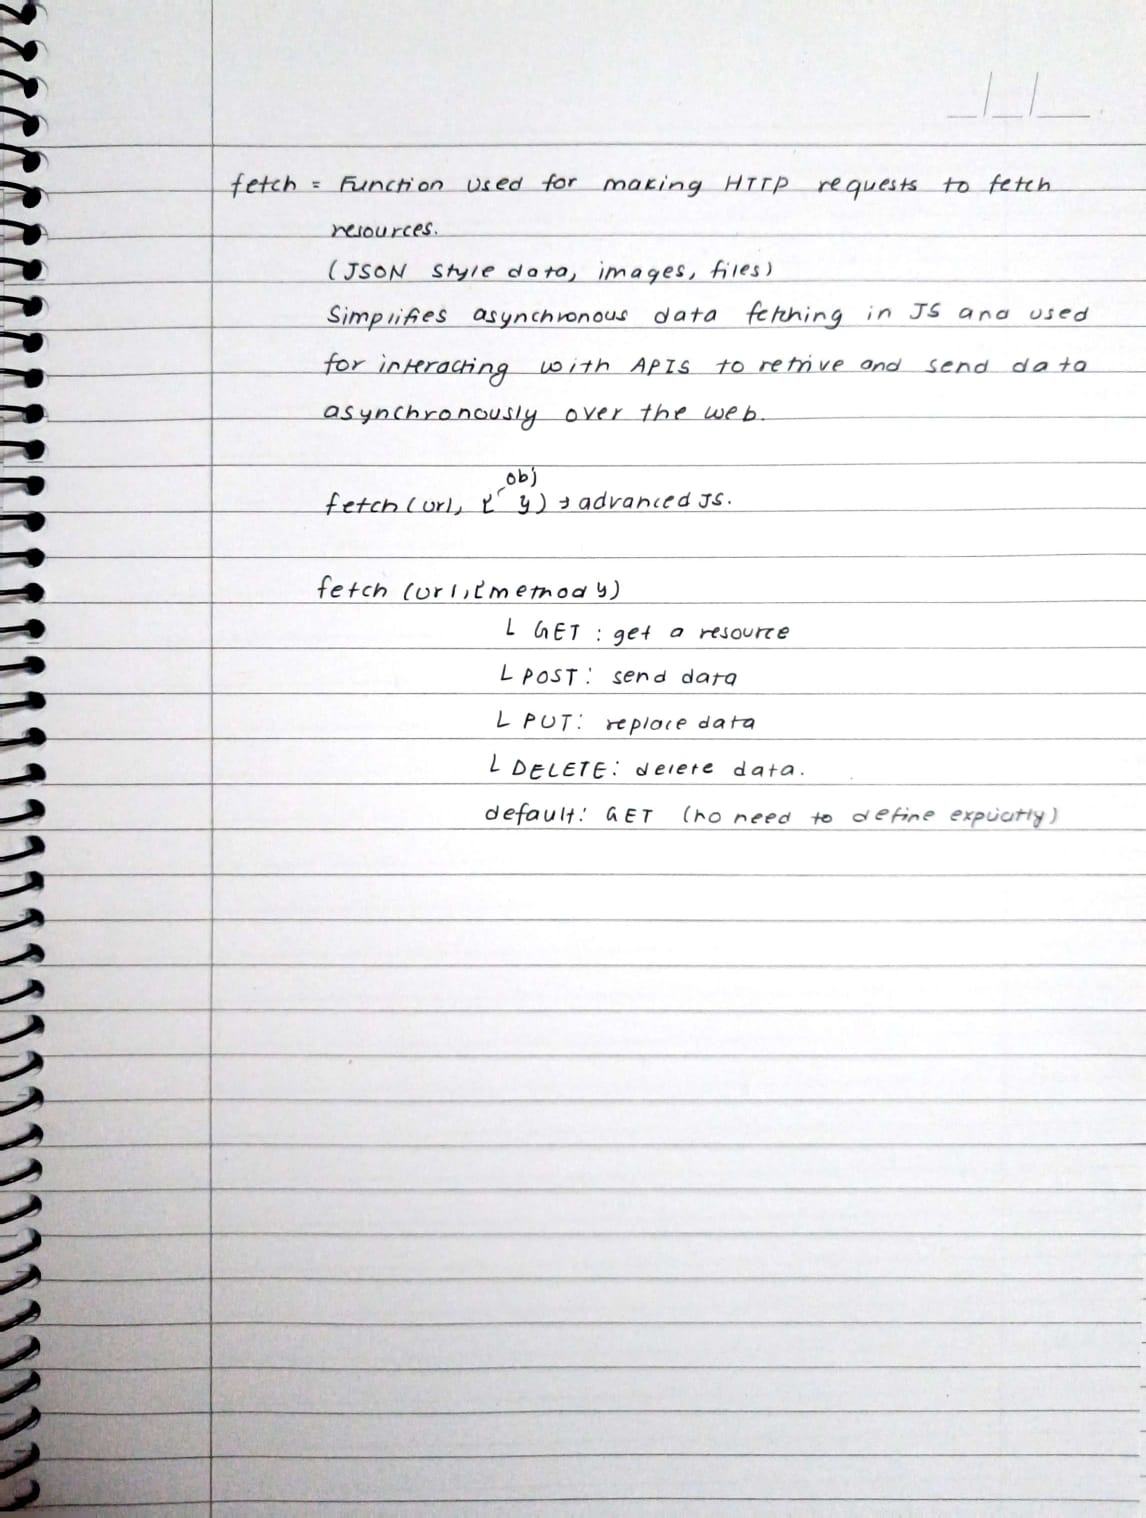 fetch = Function used for making HTTP requests to fetch
resources.
(JSON style data, images, files)
Simplifies asynchronous data fetching in JS and used
for interacting with APIs to retrive and send data
asynchronously over the web.
obj
fetch(url, { }) → advanced JS.
fetch (url, {method})
L GET : get a resource
L POST: send data
L PUT: replace data
L DELETE: delete data.
default: GET (no need to define explicitly)